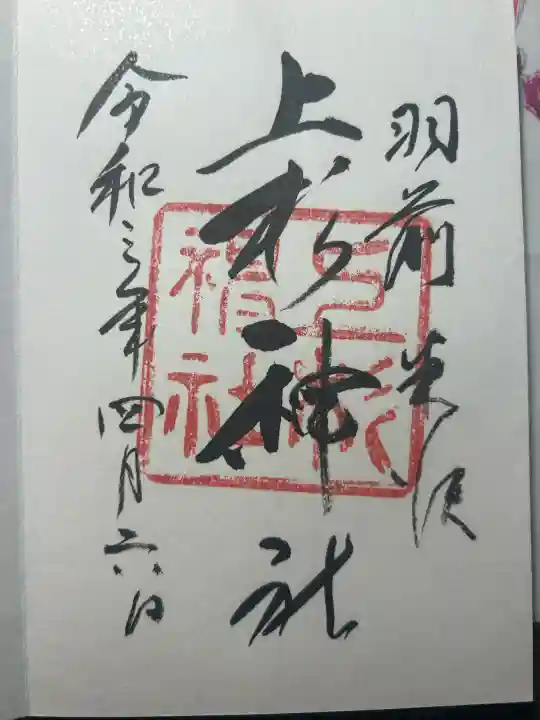 羽前 米沢
上杉神社
令和三年四月六日
上杉神社